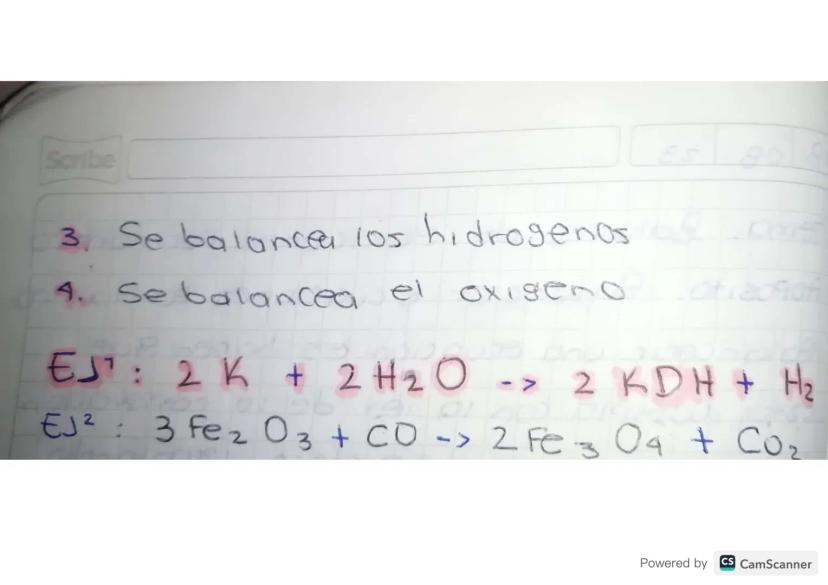 Scribe
3. Se balancea los hidrogenos
4. Se balancea el oxigeno
EJ1: 2 K + 2 H2O -> 2 KDH + H2
EJ2: 3 Fe2 O3 + CO -> 2 Fe3 O4 + CO2
Powered by CS CamScanner